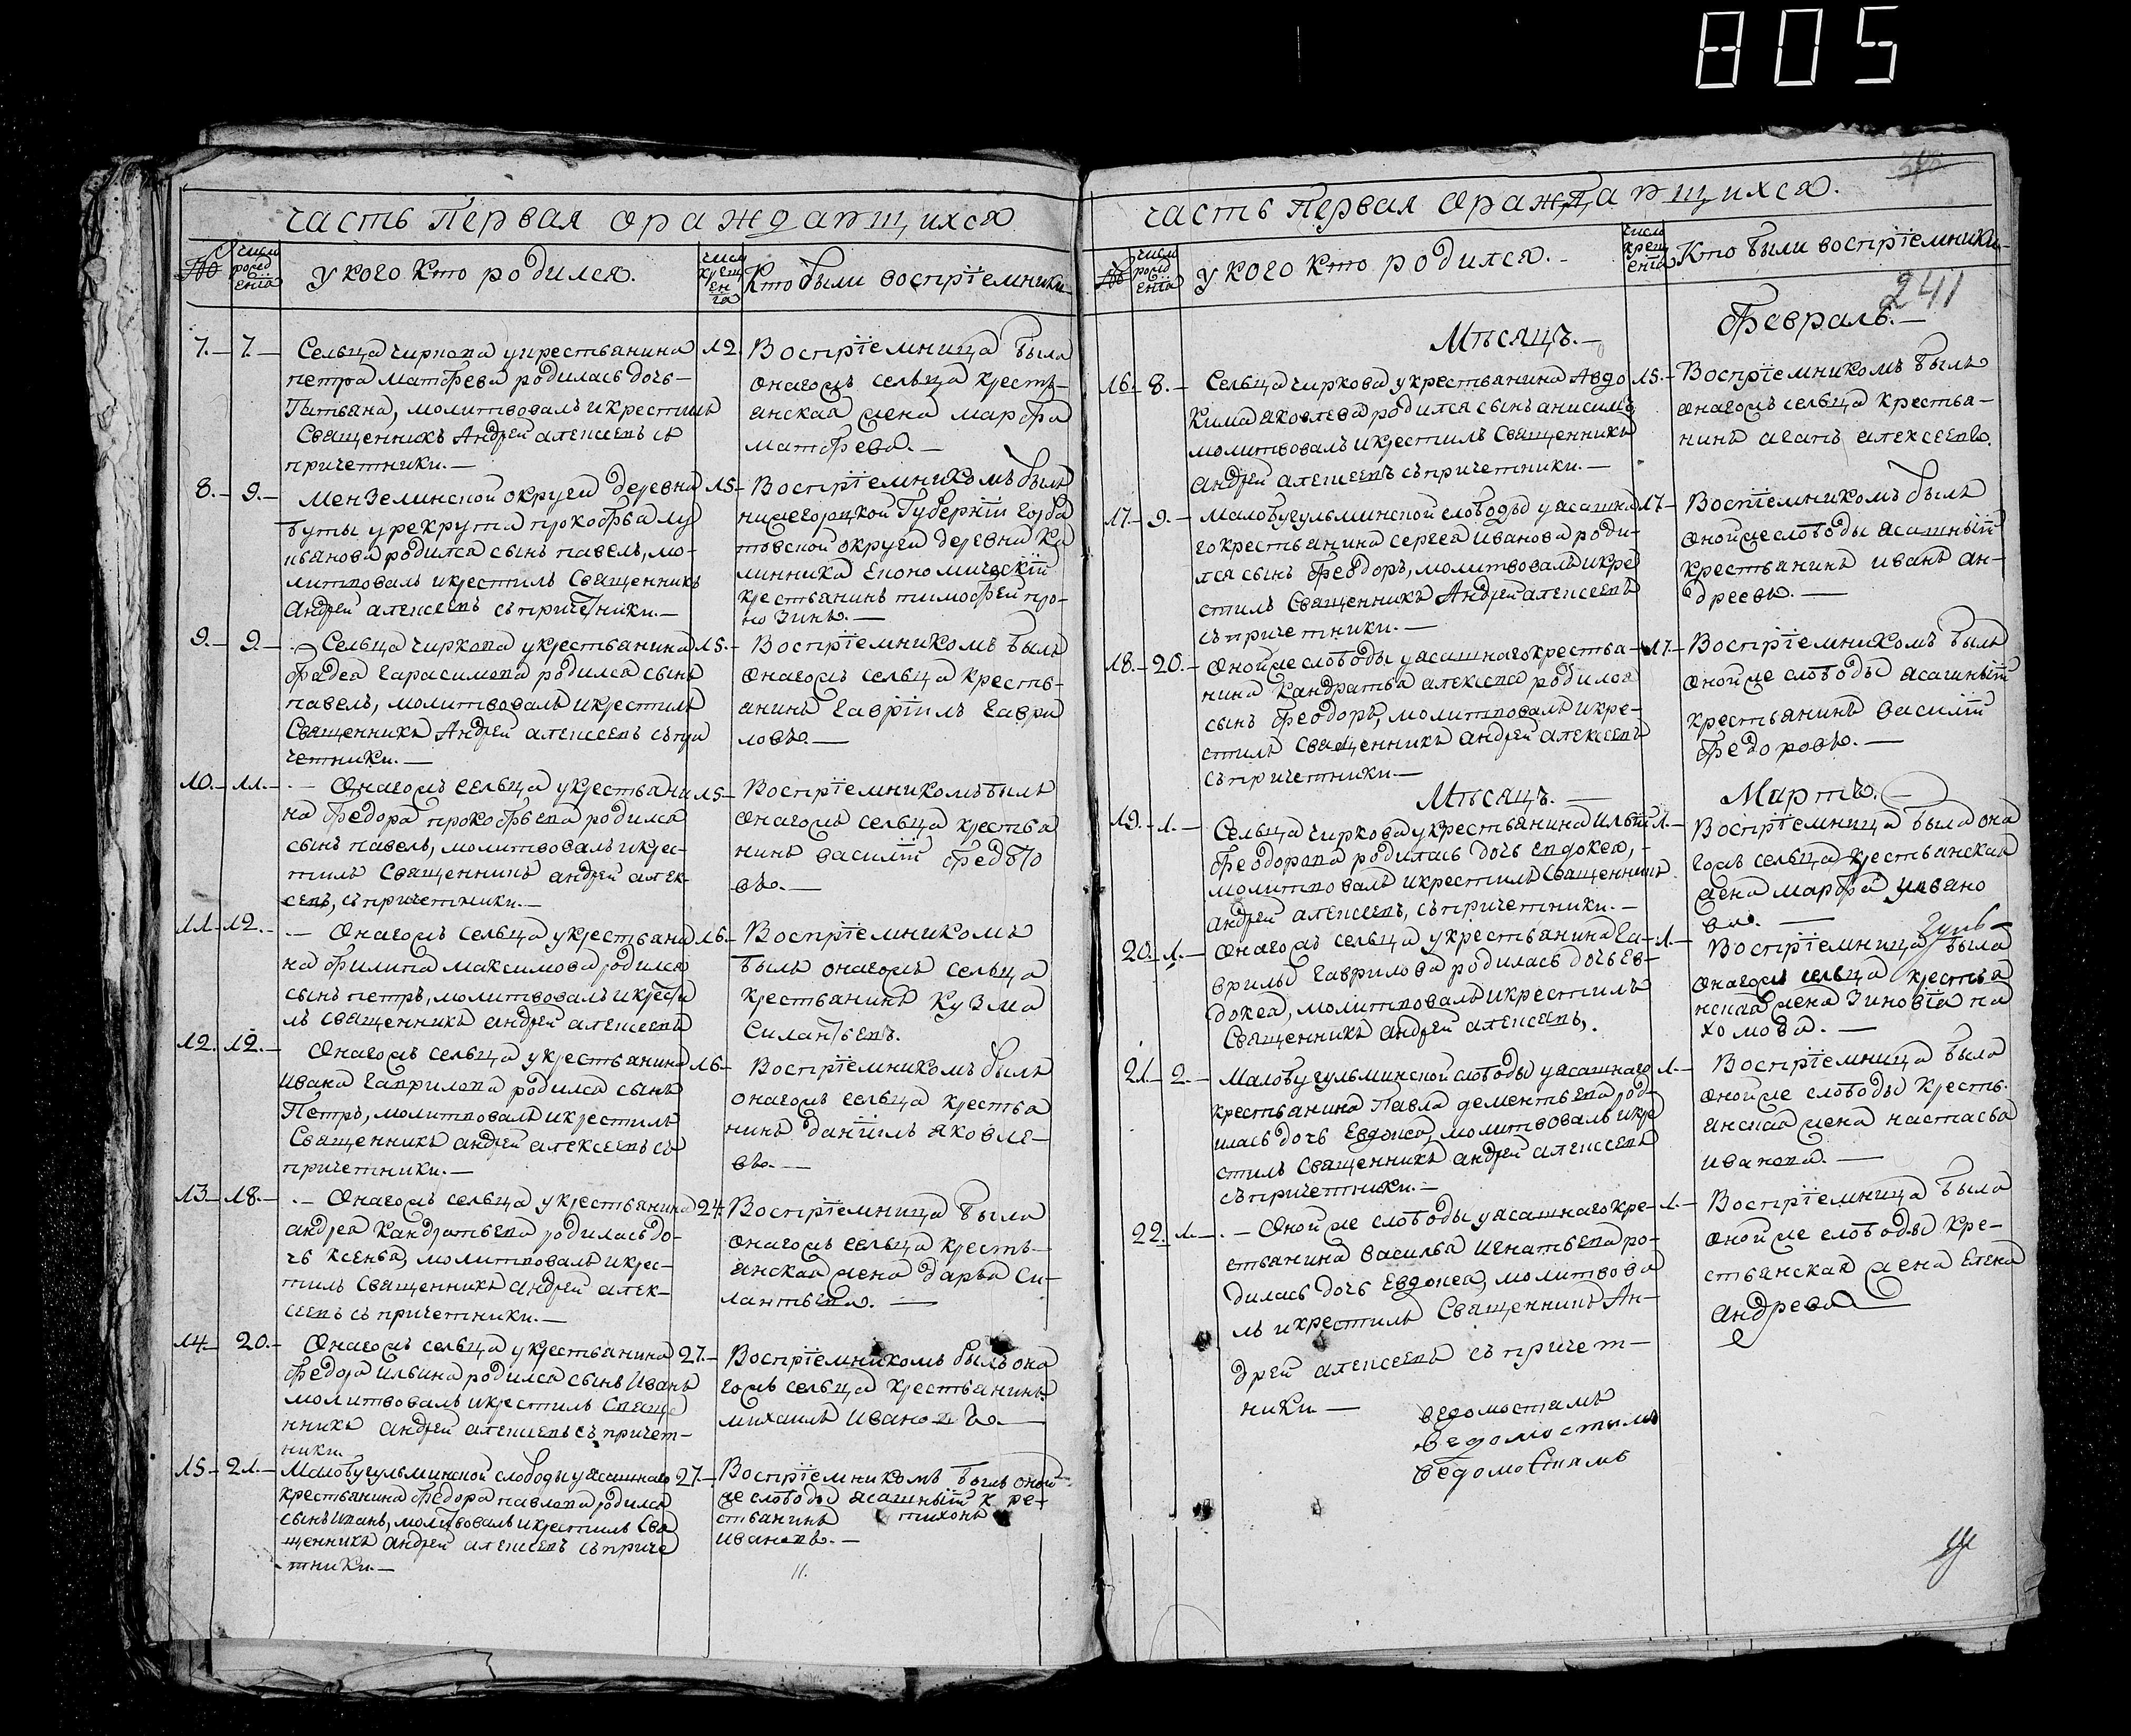 805
часть первая ораждающихся
№
число рождения
у кого кто родился.
число крещения
Кто были воспрїемники
7. — 7. —
Сельца чиркова укрестьянина
петра матфева родилась дочь —
Татьяна, молитвовалъ икрестилъ
Священникъ Андрей алексеевъ съ
причетники. —
12.
Воспрїемница была
онагожъ сельца кресть-
янская жена марфа
матфева. —
8. — 9. —
Мензелинской округи деревни
буты у рекрута прокофья лу
кьянова родился сынъ павелъ, мо-
литвовалъ икрестилъ Священникъ
Андрей алексеевъ съпричетники. —
15 —
Воспрїемникомъ былъ
нижегороцкой Губернїи Горба
товской округи деревни Ка
линника Економическїй
крестьянинъ тимофей про-
нозинъ. —
9. — 9. —
Сельца чиркова укрестьянина
фадея Гарасимова родился сынъ
павелъ, молитвовалъ икрестилъ
Священникъ Андрей алексеевъ съпри
четники. —
15. —
Воспрїемникомъ былъ
онагожъ сельца кресть-
янинъ Гаврїилъ Гаври
ловъ. —
10. — 11. —
— Онагожъ сельца укрестьяни
на федора прокофьева родился
сынъ павелъ, молитвовалъ икрес-
тилъ Священникъ андрей алек-
сеевъ, съпричетники. —
15 —
Воспрїемникомъ былъ
онагожъ сельца крестья
нинъ василїй федо
въ. —
11. 12. —
— Онагожъ сельца укрестьяни
на филипа максимова родился
сынъ петръ, молитвовалъ икрести
лъ священникъ андрей алексеевъ
16. —
Воспрїемникомъ
былъ онагожъ сельца
крестьянинъ Кузма
Силантьевъ.
12. 12. —
Онагожъ сельца укрестьянина
ивана Гаврилова родился сынъ
Петръ, молитвовалъ икрестилъ
Священникъ андрей алексеевъ съ
причетники. —
16 —
Воспрїемникомъ былъ
онагожъ сельца крестья
нинъ данїилъ яковле-
въ. —
13 — 18. —
— Онагожъ сельца укрестьянина
андрея Кандратьева родилась до-
чь ксенья, молитвовалъ икрес-
тилъ Священникъ андрей алек-
сеевъ съ причетники. —
24.
Воспрїемница была
онагожъ сельца кресть-
янская жена дарья Си-
лантьева. —
14. — 20. —
Онагожъ сельца укрестьянина
федора ильина родился сынъ Иванъ
молитвовалъ икрестилъ Свяще
нникъ андрей алексеевъ съ причет-
ники.
27. —
Воспрїемникомъ былъ она
гожъ сельца крестьянинъ
михаилъ Ивановъ. —
15 — 21. —
Малобугульминской слободы уясашнаго
крестьянина федора павлова родился
сынъ Иванъ, молитвовалъ икрестилъ Свя
щенникъ андрей алексеевъ съприче
тники. —
27. —
Воспрїемникомъ былъ оной
же слободы ясашный кре-
стьянинъ тихонъ
ивановъ. —
часть первая ораждающихся.
№
число рождения
у кого кто родился. —
число крещения
Кто были воспрїемники
241
Мѣсяцъ. —
февраль. —
16 — 8. —
Сельца чиркова укрестьянина Авдо
Кима яковлева родился сынъ анисимъ
молитвовалъ икрестилъ Священникъ
андрей алексеевъ съпричетники. —
15. —
Воспрїемникомъ былъ
онагожъ сельца крестья-
нинъ агапъ алексеевъ.
17. — 9. —
малобугульминской слободы уясашна
гокрестьянина сергея иванова роди-
лся сынъ феодоръ, молитвовалъ икре
стилъ Священникъ Андрей алексеевъ
съпричетники. —
17 —
Воспїемникомъ былъ
онойже слободы ясашный
крестьянинъ иванъ ан-
дреевъ. —
18. — 20. —
Онойже слободы уясашнагокрестья-
нина Кандратья алексева родился
сынъ феодоръ, молитвовалъ икре-
стилъ Священникъ андрей алексеевъ
съпричетники. —
17. —
Воспрїемникомъ былъ
онойже слободы ясашный
крестьянинъ василїй
федоровъ. —
Мѣсяцъ. —
Мартъ.
19. — 1. —
Сельца чиркова укрестьянина ильи
феодорова родилась дочь евдокея, —
молитвовалъ икрестилъ Священникъ
андрей алексеевъ, съпричетники. —
1. —
Воспрїемница была она
гожъ сельца крестьянская
жена марфа ивано
ва. —
20. — 1. —
Онагожъ сельца укрестьянина Га-
врилы Гаврилова родилась дочь Ев-
докея, молитвовалъ икрестилъ
Священникъ андрей алексеевъ.
1. —
Воспрїемница была
онагожъ сельца крестья
нская жена Зиновїя па
хомова. —
21. — 2. —
Малобугульминской слободы уясашнаго
крестьянина Павла дементьева род-
илась дочь Евдокея, молитвовалъ икре
стилъ Священникъ андрей алексеевъ
съпричетники. —
1. —
Воспрїемница была
онойже слободы кресть-
янская жена настасья
иванова. —
22. — 1. —
— Онойже слободы уясашнагокре-
стьянина василья игнатьева ро-
дилась дочь Евдокея, молитвова
лъ икрестилъ Священникъ Ан-
дрей алексеевъ съ причет-
ники —
1. —
Воспрїемница была
онойже слободы кре-
стьянская жена Елена
андреева
ведомостямъ
ведомостямъ
ведомостямъ